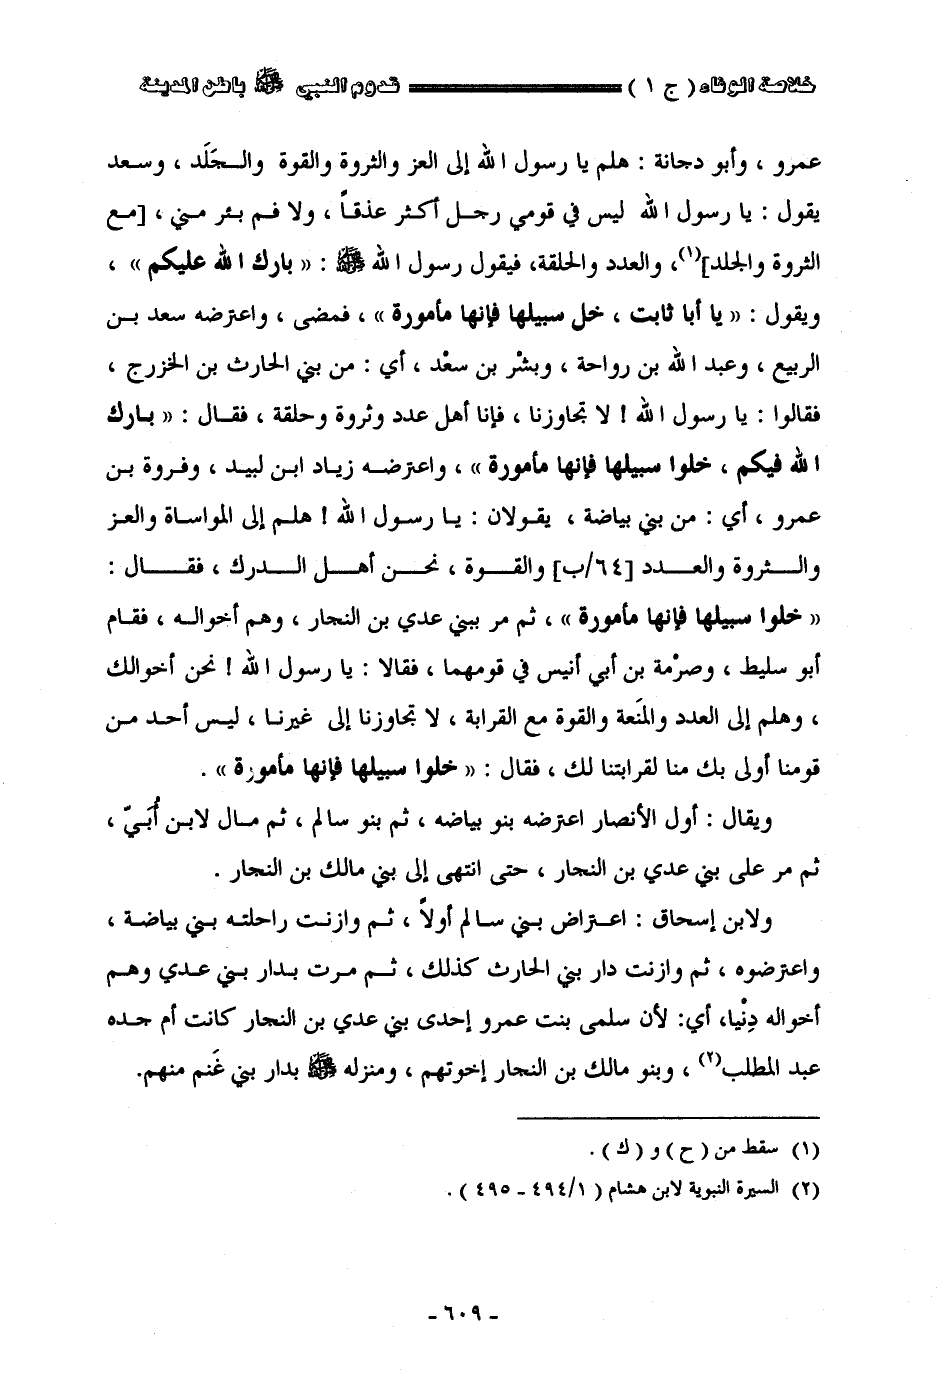 خلاصة الوفاء ( ج ١ ) قدوم النبي ﷺ باطن المدينة
عمرو ، وأبو دجانة : هلم يا رسول الله إلى العز والثروة والقوة والجَلَد ، وسعد
يقول : يا رسول الله ليس في قومي رجل أكثر عذقاً ، ولا فم بئر مني ، [مع
الثروة والجلد](١)، والعدد والحلقة، فيقول رسول الله ﷺ : « بارك الله عليكم » ،
ويقول : « يا أبا ثابت ، خل سبيلها فإنها مأمورة » ، فمضى ، واعترضه سعد بن
الربيع ، وعبد الله بن رواحة ، وبشْر بن سعْد ، أي : من بني الحارث بن الخزرج ،
فقالوا : يا رسول الله ! لا تجاوزنا ، فإنا أهل عدد وثروة وحلقة ، فقال : « بارك
الله فيكم ، خلوا سبيلها فإنها مأمورة » ، واعترضه زياد ابن لبيد ، وفروة بن
عمرو ، أي : من بني بياضة ، يقولان : يا رسول الله ! هلم إلى المواساة والعز
والثروة والعدد [٦٤/ب] والقوة ، نحن أهل الدرك ، فقال :
« خلوا سبيلها فإنها مأمورة » ، ثم مر ببني عدي بن النجار ، وهم أخواله ، فقام
أبو سليط ، وصرْمة بن أبي أنيس في قومهما ، فقالا : يا رسول الله ! نحن أخوالك
، وهلم إلى العدد والمنَعة والقوة مع القرابة ، لا تجاوزنا إلى غيرنا ، ليس أحد من
قومنا أولى بك منا لقرابتنا لك ، فقال : « خلوا سبيلها فإنها مأمورة » .
ويقال : أول الأنصار اعترضه بنو بياضه ، ثم بنو سالم ، ثم مال لابن أُبَيّ ،
ثم مر على بني عدي بن النجار ، حتى انتهى إلى بني مالك بن النجار .
ولابن إسحاق : اعتراض بني سالم أولاً ، ثم وازنت راحلته بني بياضة ،
واعترضوه ، ثم وازنت دار بني الحارث كذلك ، ثم مرت بدار بني عدي وهم
أخواله دِنْيا، أي: لأن سلمى بنت عمرو إحدى بني عدي بن النجار كانت أم جده
عبد المطلب(٢) ، وبنو مالك بن النجار إخوتهم ، ومنزله ﷺ بدار بني غَنم منهم.
(١) سقط من ( ح ) و ( ك ) .
(٢) السيرة النبوية لابن هشام ( ١/ ٤٩٤ - ٤٩٥ ) .
- ٦٠٩ -